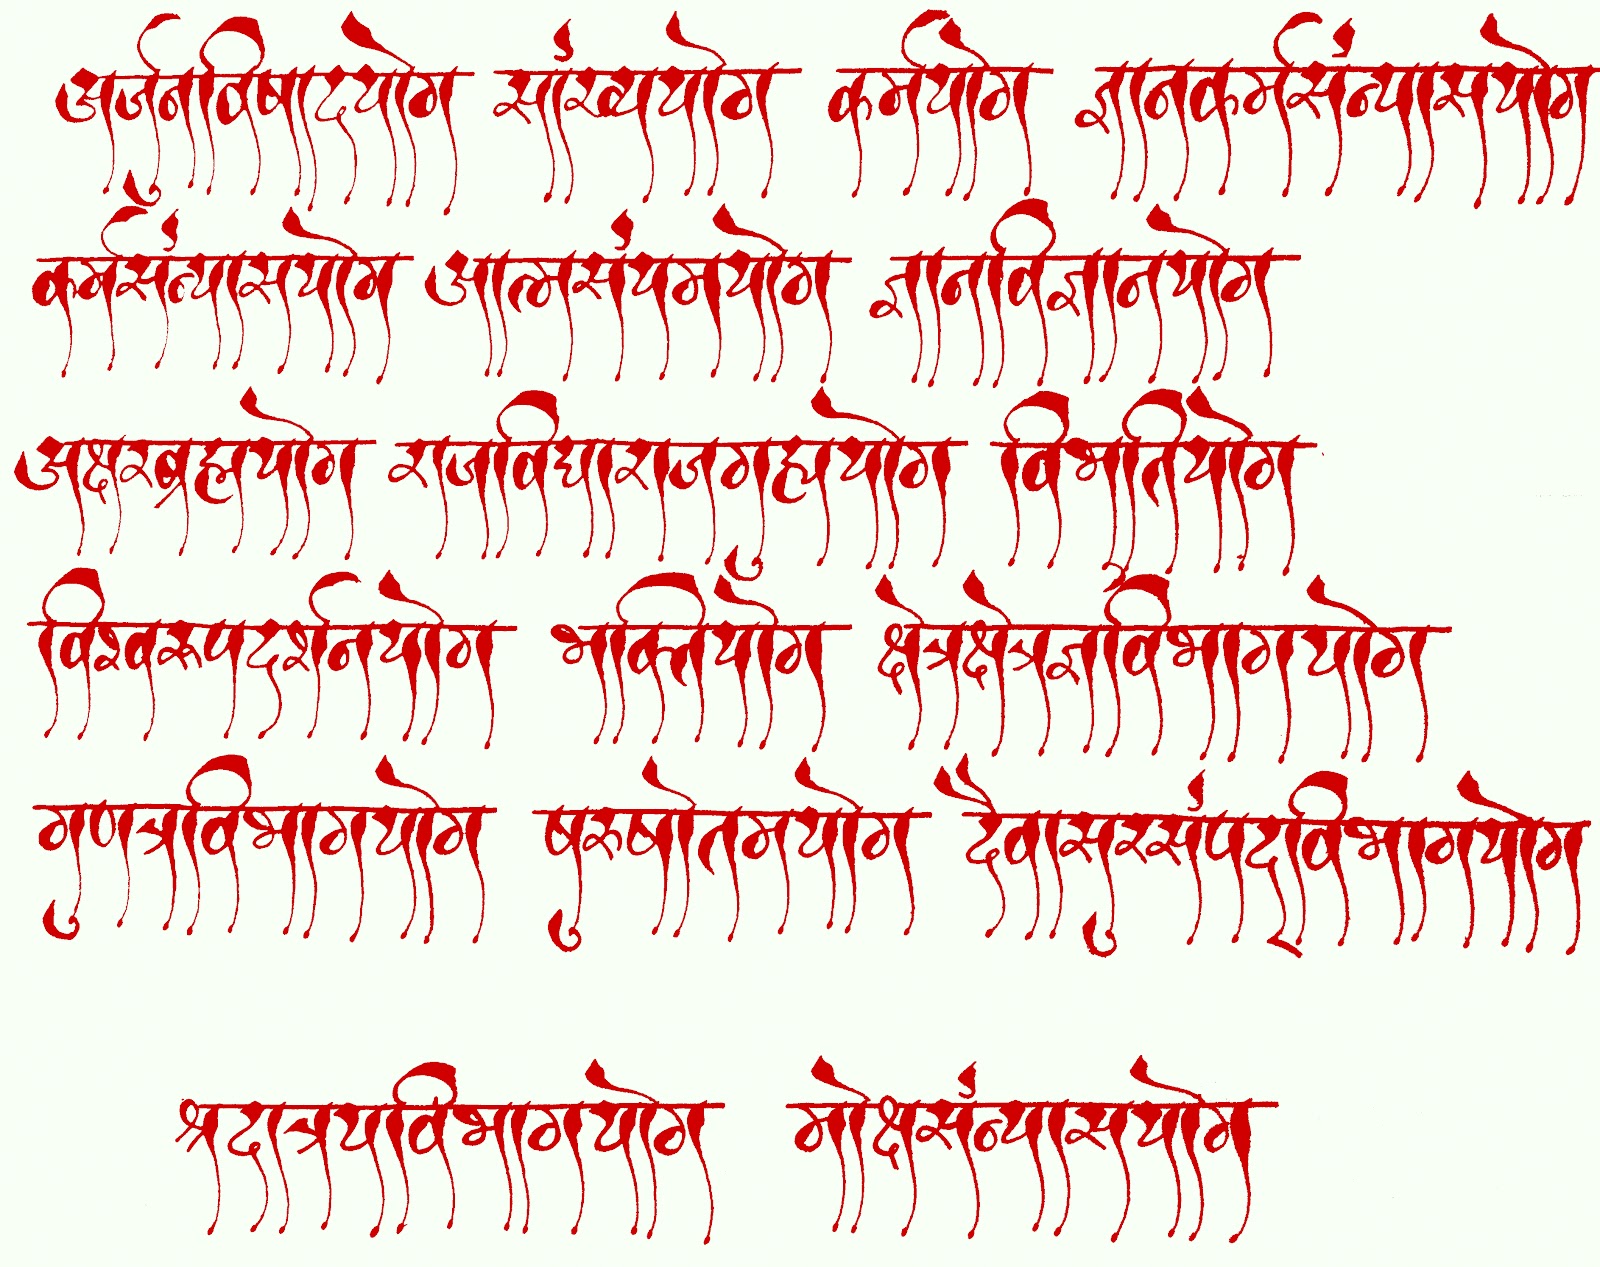 अर्जुनविषादयोग सांख्ययोग कर्मयोग ज्ञानकर्मसंन्यासयोग
कर्मसंन्यासयोग आत्मसंयमयोग ज्ञानविज्ञानयोग
अक्षरब्रह्मयोग राजविद्याराजगुह्ययोग विभूतियोग
विश्वरूपदर्शनयोग भक्तियोग क्षेत्रक्षेत्रज्ञविभागयोग
गुणत्रविभागयोग षुरुषोतमयोग दैवासुरसंपद्विभागयोग
श्रद्धात्रयविभागयोग मोक्षसंन्यासयोग